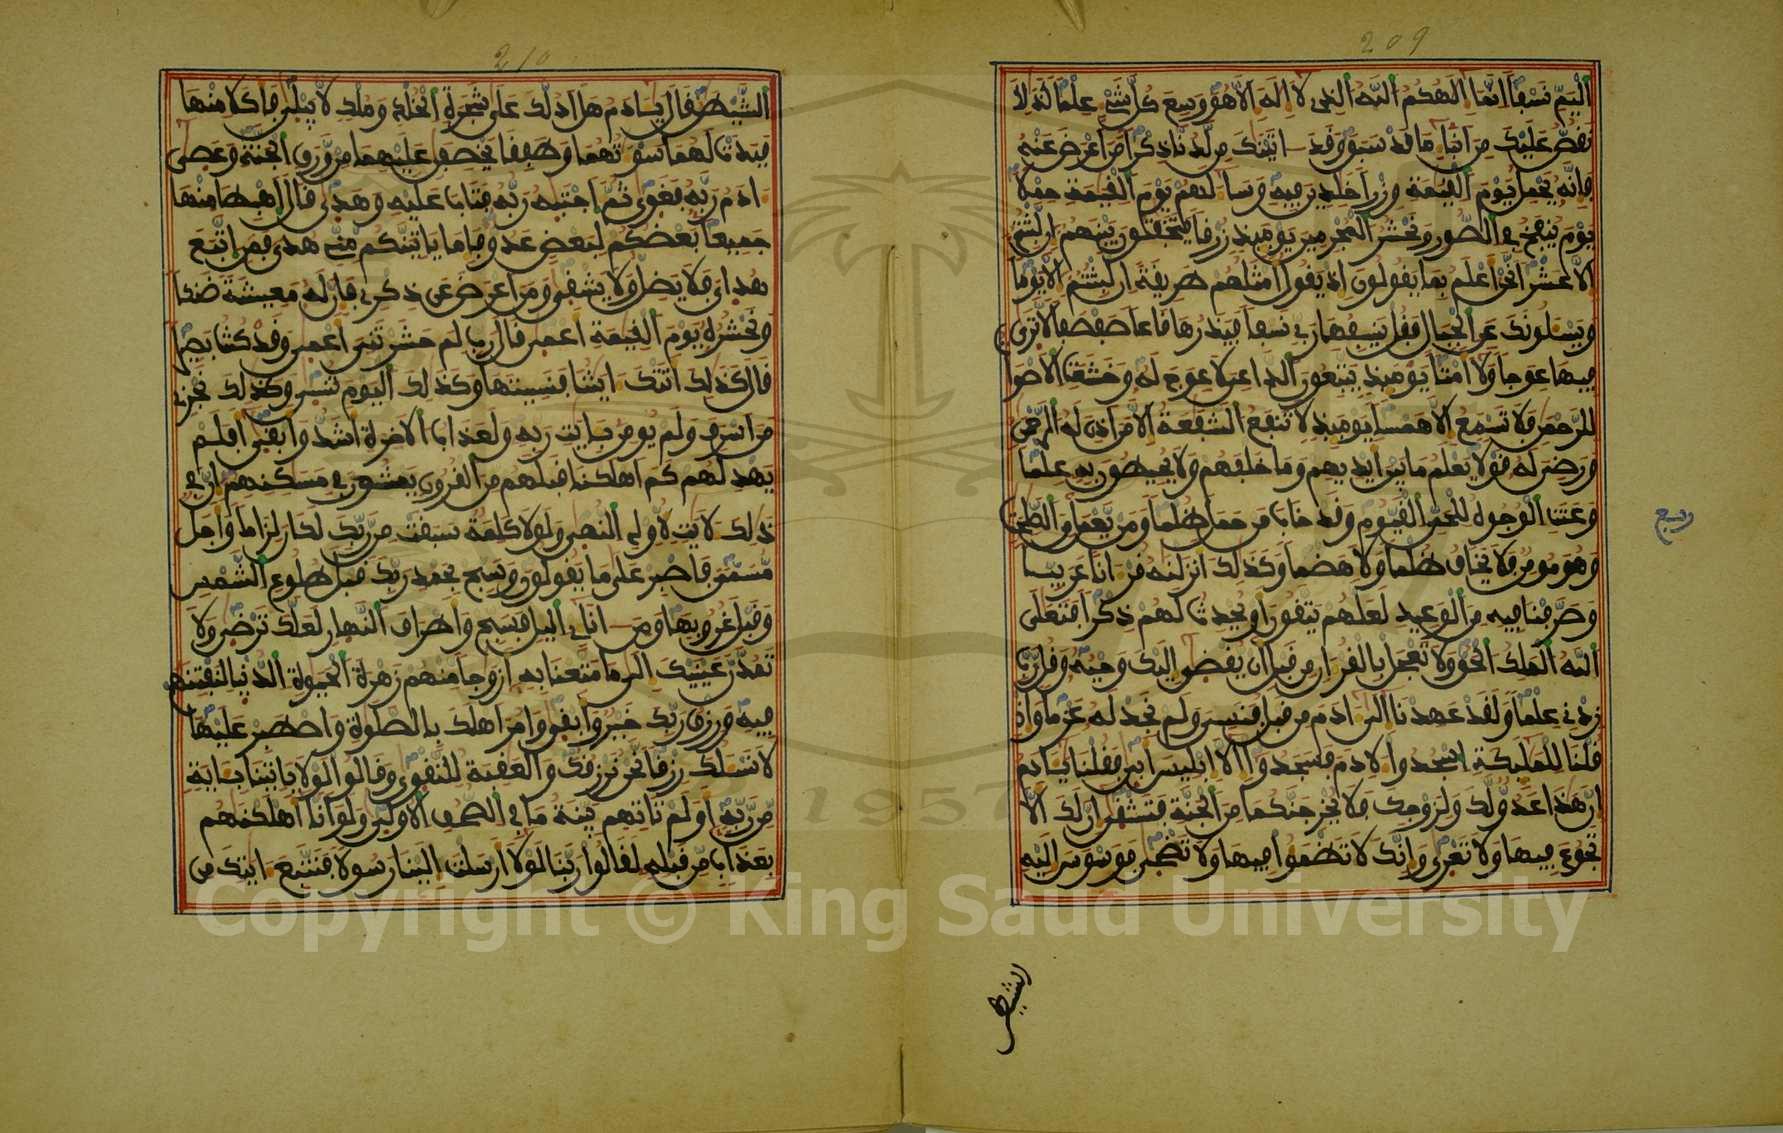 209
اليم نسفا انما الهكم الله الذي لا اله الا هو وسع كل شيء علما كذلك
نقص عليك من انباء ما قد سبق وقد اتينك من لدنا ذكرا من اعرض عنه
فانه يحمل يوم القيمة وزرا خلدين فيه وساء لهم يوم القيمة حملا
يوم ينفخ في الصور ونحشر المجرمين يوميذ زرقا يتخفتون بينهم ان لبثتم
الا عشرا نحن اعلم بما يقولون اذ يقول امثلهم طريقة ان لبثتم الا يوما
ويسلونك عن الجبال فقل ينسفها ربي نسفا فيذرها قاعا صفصفا لا ترى
فيها عوجا ولا امتا يوميذ يتبعون الداعي لا عوج له وخشعت الاصوا
للرحمن فلا تسمع الا همسا يوميذ لا تنفع الشفعة الا من اذن له الرحمن
ورضي له قولا يعلم ما بين ايديهم وما خلفهم ولا يحيطون به علما
وعنت الوجوه للحي القيوم وقد خاب من حمل ظلما ومن يعمل من الصلحت
وهو مومن فلا يخاف ظلما ولا هضما وكذلك انزلنه قرءانا عربيا
وصرفنا فيه من الوعيد لعلهم يتقون او يحدث لهم ذكرا فتعلى
الله الملك الحق ولا تعجل بالقرءان من قبل ان يقضى اليك وحيه وقل رب
زدني علما ولقد عهدنا الى ءادم من قبل فنسي ولم نجد له عزما واذ
قلنا للمليكة اسجدوا لادم فسجدوا الا ابليس ابى فقلنا يـادم
ان هذا عدو لك ولزوجك فلا يخرجنكما من الجنة فتشقى ان لك الا
تجوع فيها ولا تعرى وانك لا تظمؤا فيها ولا تضحى فوسوس اليه
ربع
الشيطن
210
الشيطن قال يـادم هل ادلك على شجرة الخلد وملك لا يبلى فاكلا منها
فبدت لهما سوءتهما وطفقا يخصفن عليهما من ورق الجنة وعصى
ءادم ربه فغوى ثم اجتبه ربه فتاب عليه وهدى قال اهبطا منها
جميعا بعضكم لبعض عدو فاما ياتينكم مني هدى فمن اتبع
هداي فلا يضل ولا يشقى ومن اعرض عن ذكري فان له معيشة ضنكا
ونحشره يوم القيمة اعمى قال رب لم حشرتني اعمى وقد كنت بصيرا
قال كذلك اتتك ءايتنا فنسيتها وكذلك اليوم تنسى وكذلك نجزي
من اسرف ولم يومن بـايت ربه ولعذاب الاخرة اشد وابقى افلم
يهد لهم كم اهلكنا قبلهم من القرون يمشون في مسكنهم ان في
ذلك لايت لاولي النهى ولولا كلمة سبقت من ربك لكان لزاما واجل
مسمى فاصبر على ما يقولون وسبح بحمد ربك قبل طلوع الشمس
وقبل غروبها ومن ءاناءي اليل فسبح واطراف النهار لعلك ترضى ولا
تمدن عينيك الى ما متعنا به ازوجا منهم زهرة الحيوة الدنيا لنفتنهم
فيه ورزق ربك خير وابقى وامر اهلك بالصلوة واصطبر عليها
لا نسلك رزقا نحن نرزقك والعقبة للتقوى وقالوا لولا ياتينا بـاية
من ربه او لم تاتهم بينة ما في الصحف الاولى ولو انا اهلكنهم
بعذاب من قبله لقالوا ربنا لولا ارسلت الينا رسولا فنتبع ءايتك من
1957
Copyright © King Saud University